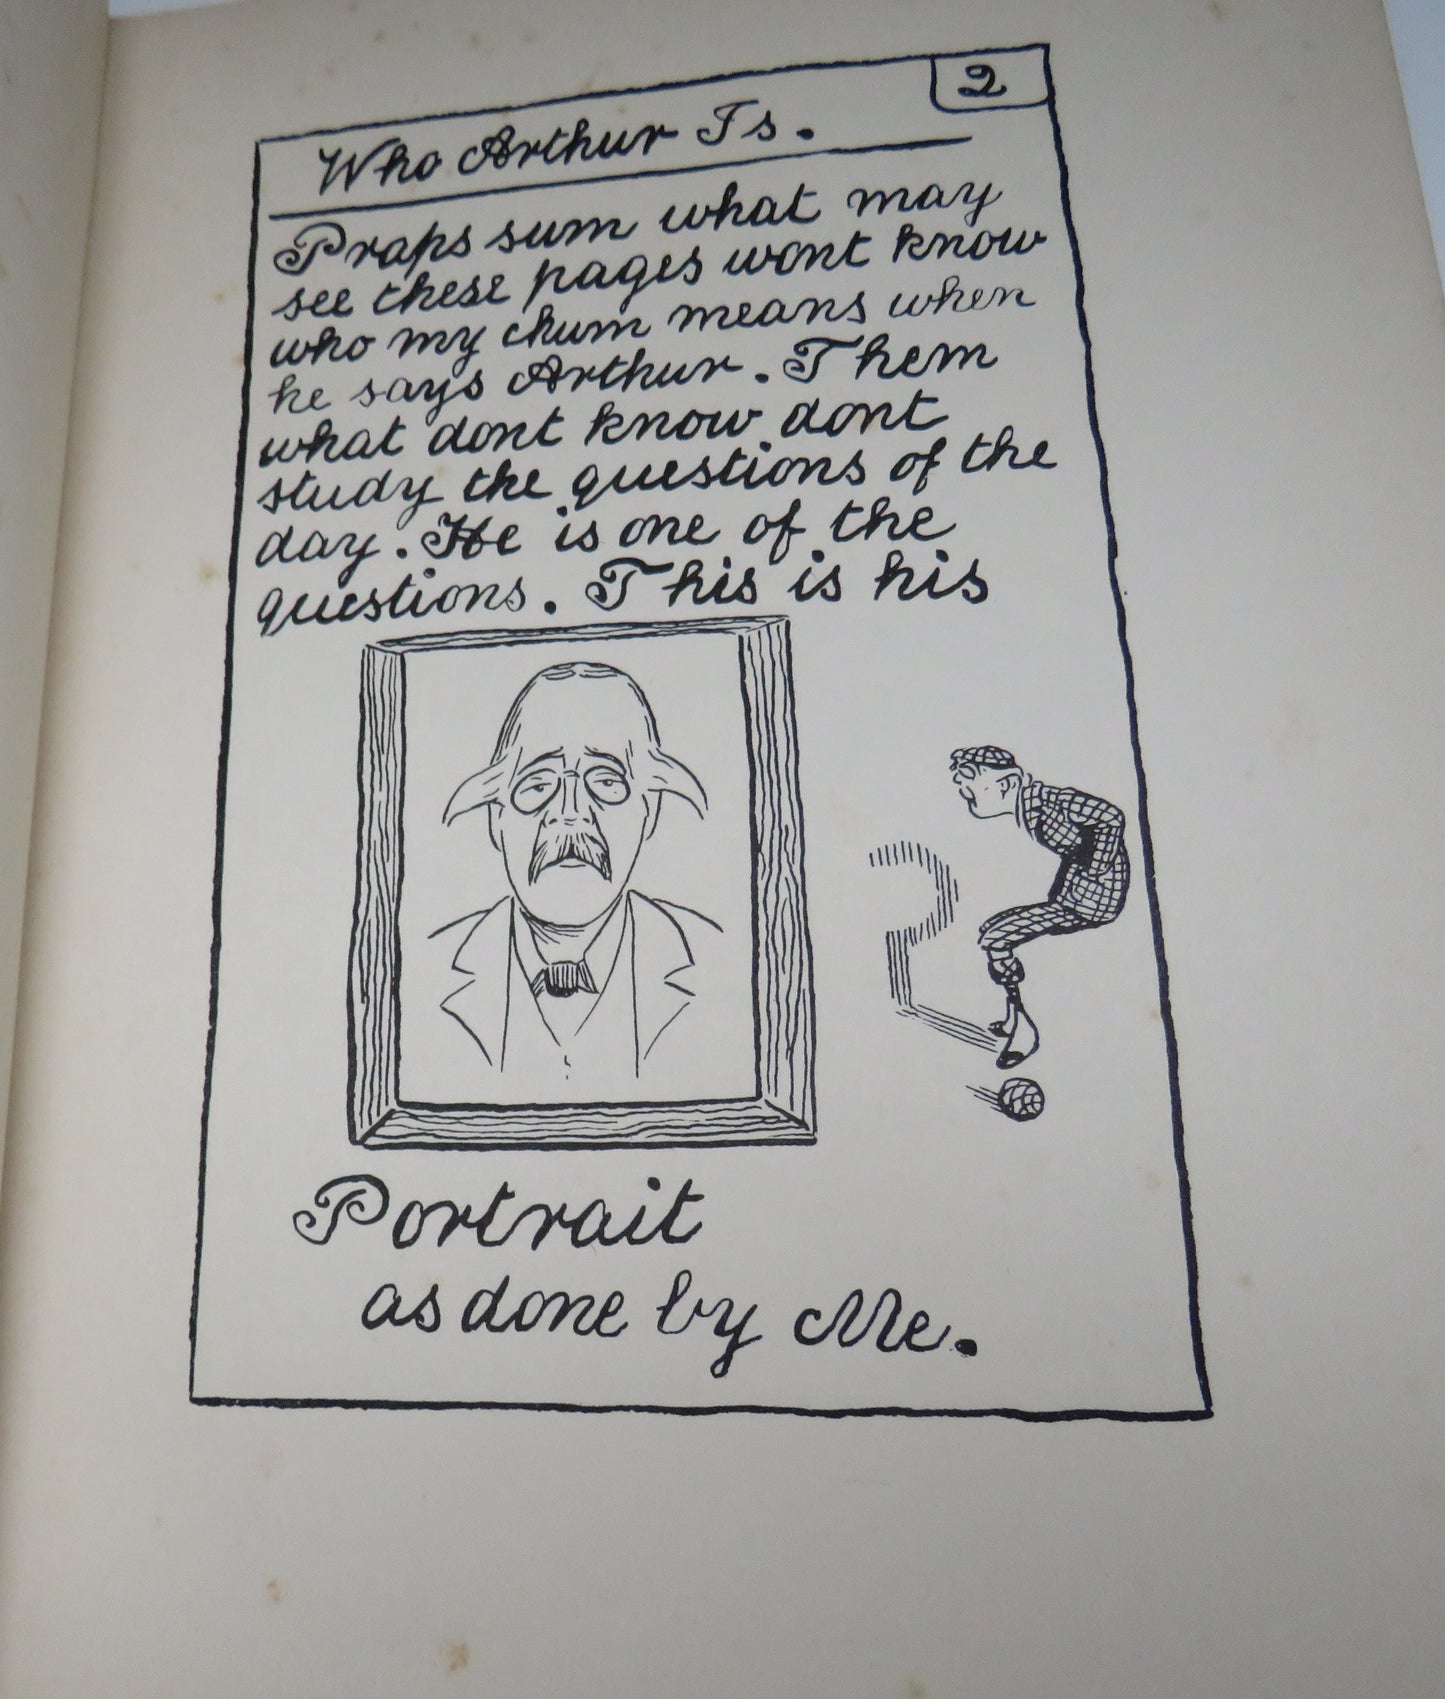 2
Who Arthur Is.
Praps sum what may
see these pages wont know
who my chum means when
he says Arthur. Them
what dont know dont
study the questions of the
day. He is one of the
questions. This is his
Portrait
as done by Me.